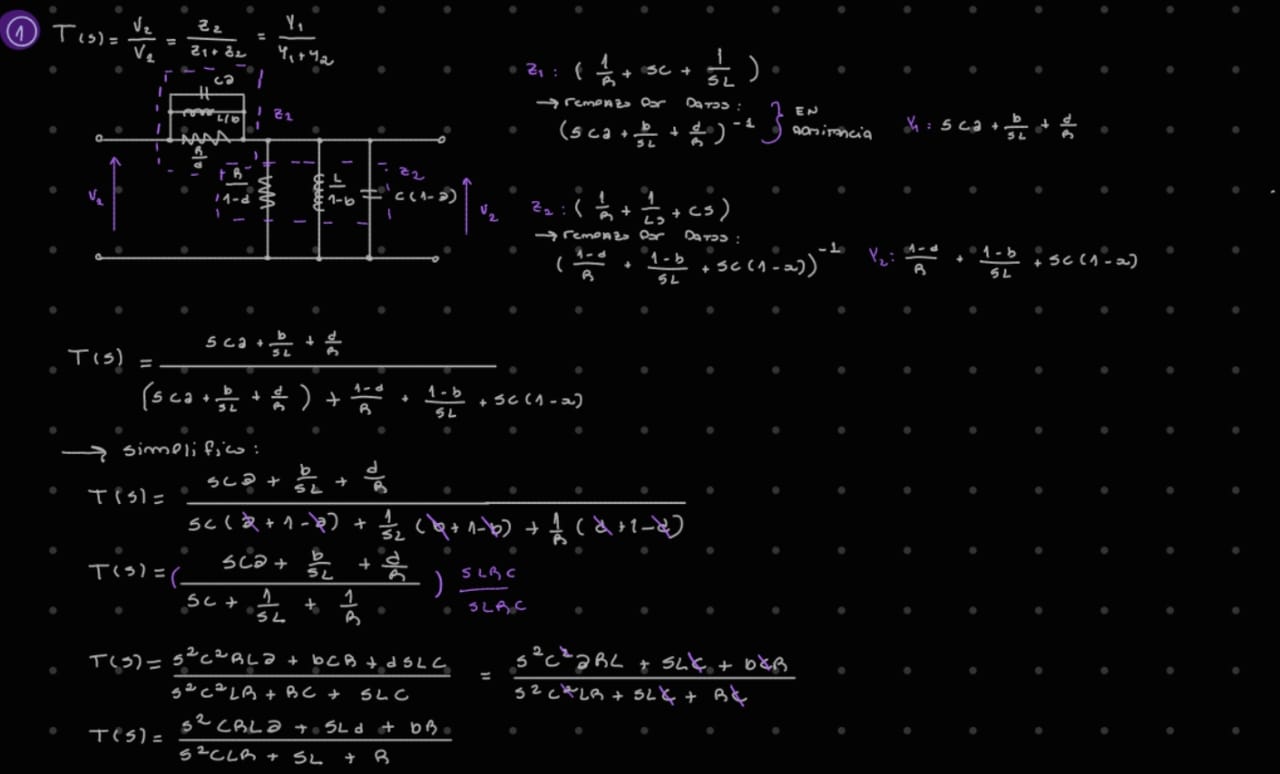 1
T(s) = V2/V2 = Z2/(Z1+Z2) = Y1/(Y1+Y2)
Ca
L/b
R/d
Z2
R/(1-d)
L/(1-b)
C(1-a)
Z2
V1
V2
Z1: (1/R + sC + 1/sL)
→ remplazo por datos:
(sCa + b/sL + d/R)^-1 } EN admitancia
Y1: sCa + b/sL + d/R
Z2: (1/R + 1/Ls + Cs)
→ remplazo por datos:
((1-d)/R + (1-b)/sL + sC(1-a))^-1
Y2: (1-d)/R + (1-b)/sL + sC(1-a)
T(s) = (sCa + b/sL + d/R) / ((sCa + b/sL + d/R) + (1-d)/R + (1-b)/sL + sC(1-a))
→ simplifico:
T(s) = (sCa + b/sL + d/R) / (sC(a+1-a) + 1/sL (b+1-b) + 1/R (d+1-d))
T(s) = ((sCa + b/sL + d/R) / (sC + 1/sL + 1/R)) sLRC/sLRC
T(s) = (s²C²RLa + bCR + dsLC) / (s²C²LR + RC + sLC) = (s²C²aRL + sLC + bCR) / (s²C²LR + sLC + RC)
T(s) = (s²CRLa + sLd + bR) / (s²CLR + sL + R)